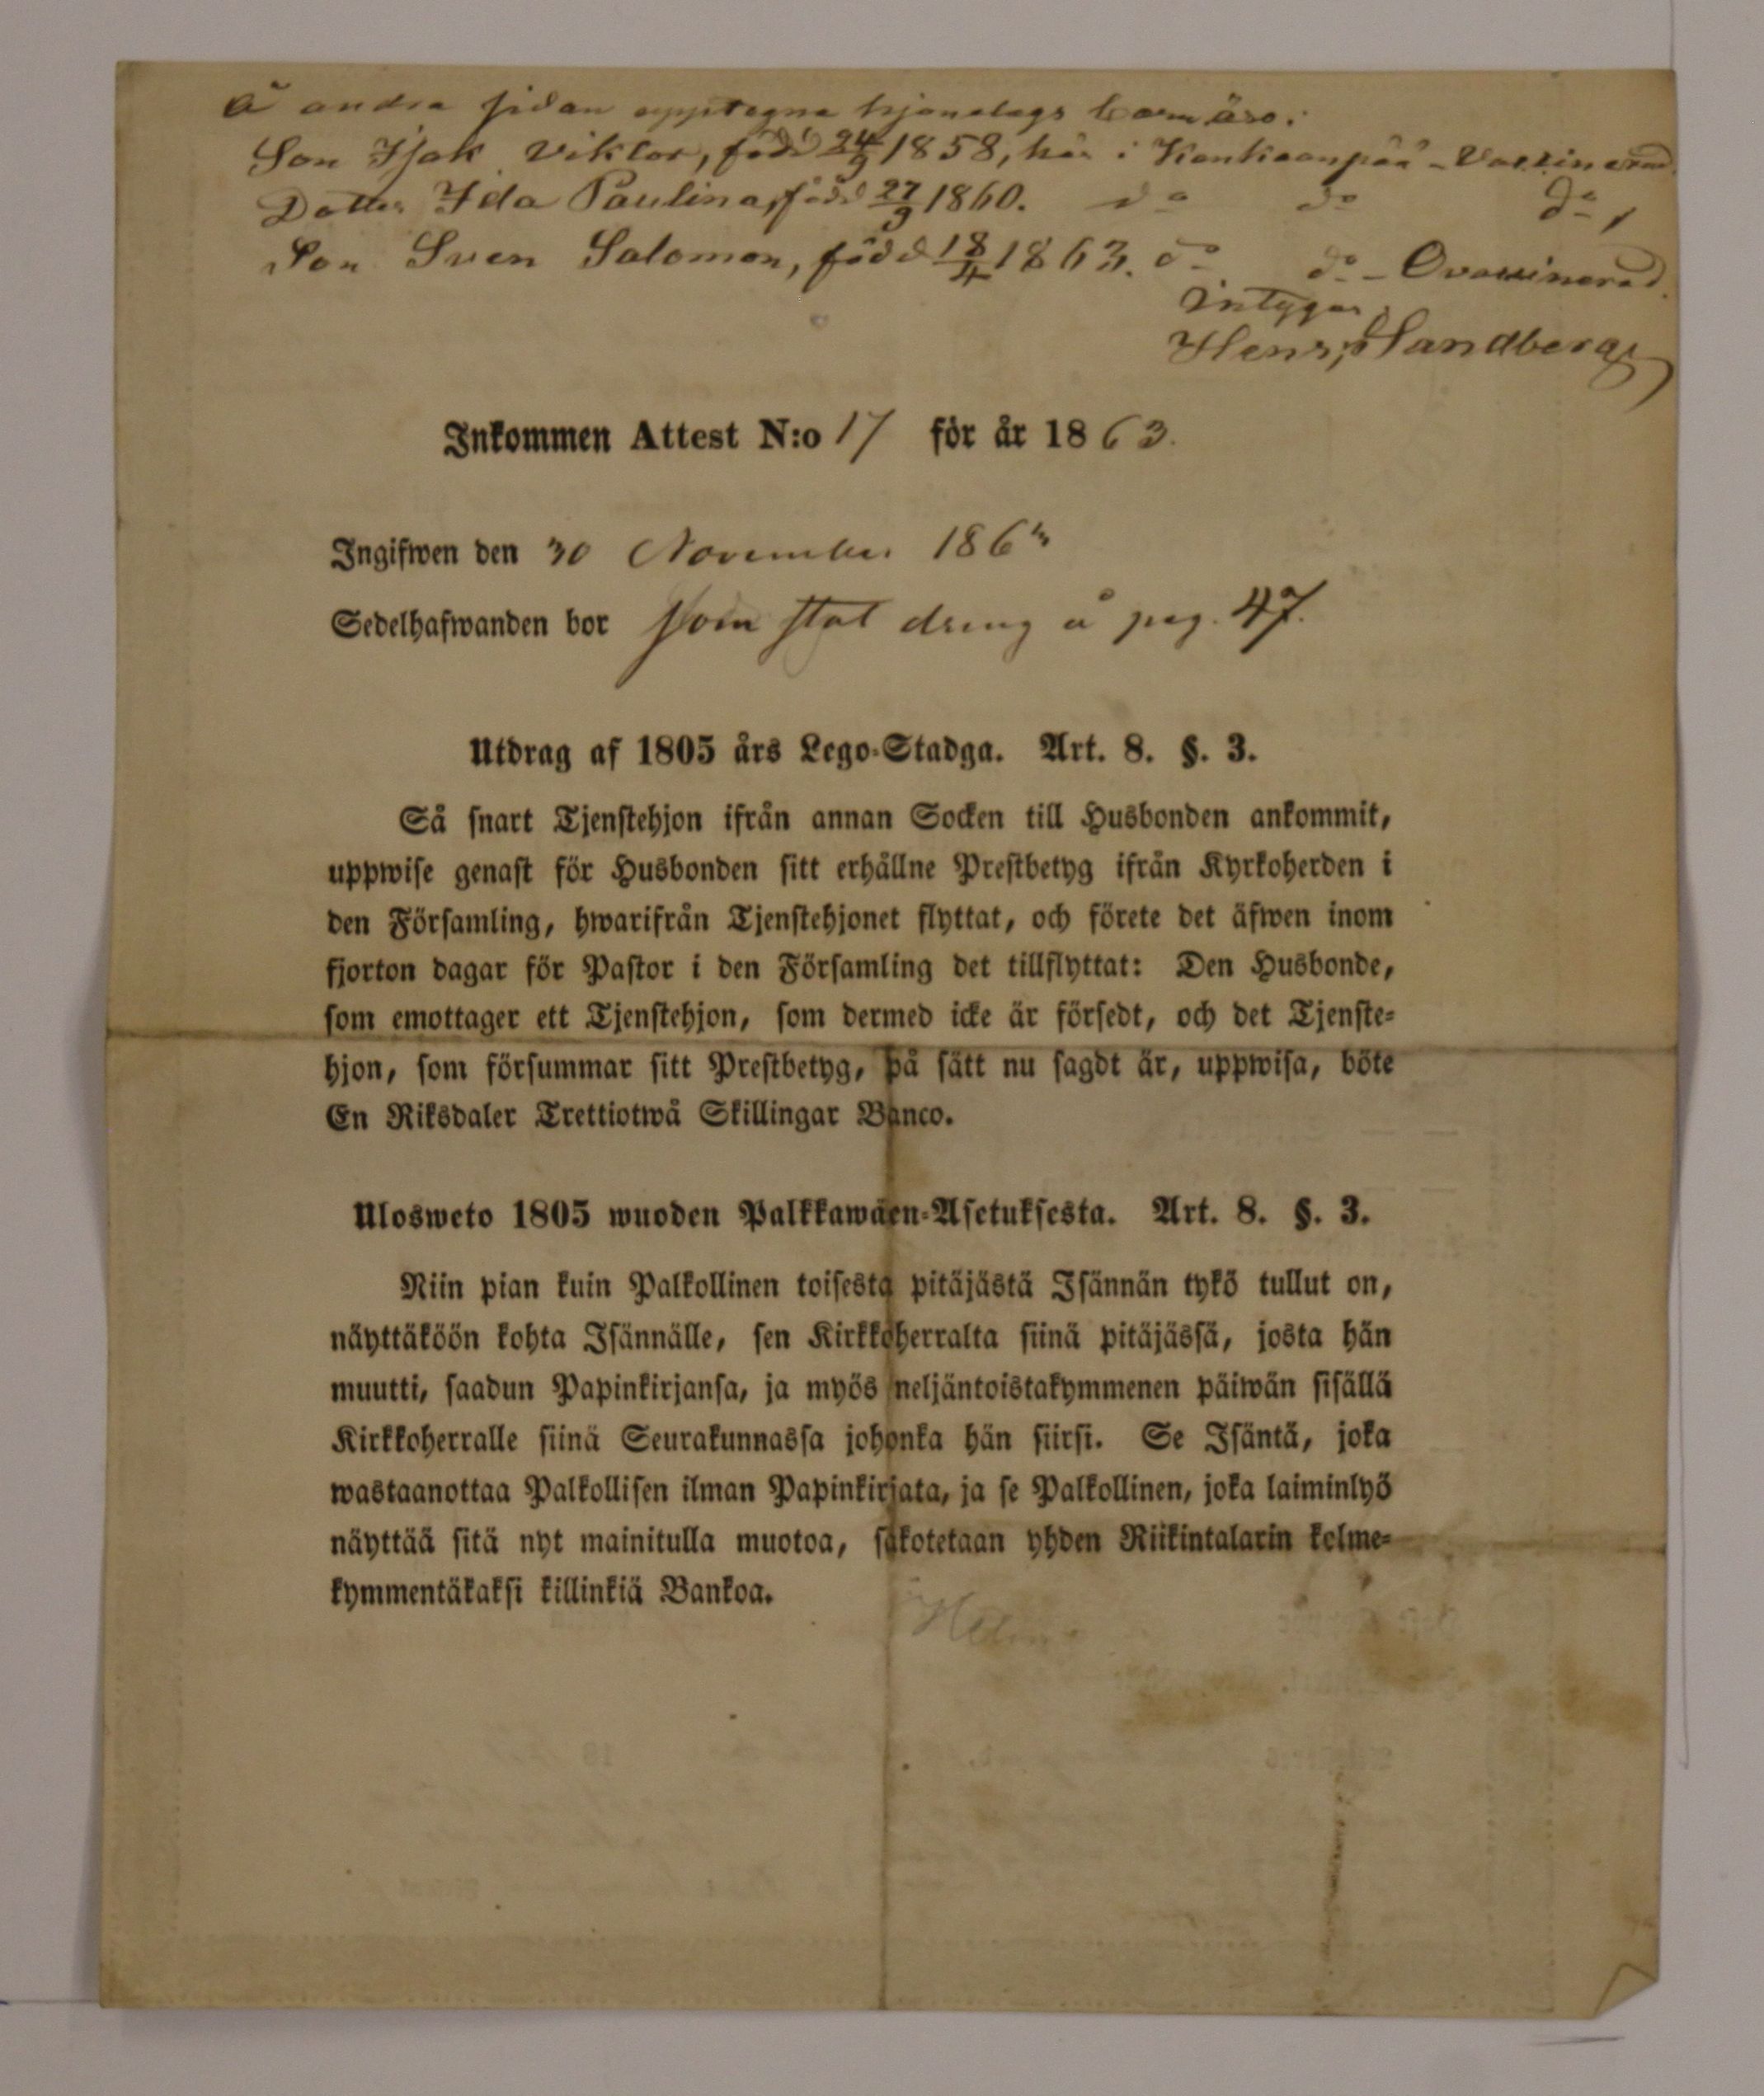 å andra sidan upptagne hjonelags barn äro:
Son Isak Viktor, född 24/9 1858, här i Kankaanpää - Vaccinerad.
Dotter Ida Paulina, född 27/9 1860. do do do,
Son Sven Salomon, född 18/4 1863. do do - Ovaccinerad.
Intygar,
Henr. Sandberg
Inkommen Attest N:o 17 för år 1863.
Ingifwen den 30 November 1863
Sedelhafwanden bor som stat dreng å pag. 47.
Utdrag af 1805 års Lego-Stadga. Art. 8. §. 3.
Så snart Tjenstehjon ifrån annan Socken till Husbonden ankommit,
uppwise genast för Husbonden sitt erhållne Prestbetyg ifrån Kyrkoherden i
den Församling, hwarifrån Tjenstehjonet flyttat, och förete det äfwen inom
fjorton dagar för Pastor i den Församling det tillflyttat: Den Husbonde,
som emottager ett Tjenstehjon, som dermed icke är försedt, och det Tjenste-
hjon, som försummar sitt Prestbetyg, på sätt nu sagdt är, uppwisa, böte
En Riksdaler Trettiotwå Skillingar Banco.
Ulosweto 1805 wuoden Palkkawäen-Asetuksesta. Art. 8. §. 3.
Niin pian kuin Palkollinen toisesta pitäjästä Isännän tykö tullut on,
näyttäköön kohta Isännälle, sen Kirkkoherralta siinä pitäjässä, josta hän
muutti, saadun Papinkirjansa, ja myös neljäntoistakymmenen päiwän sisällä
Kirkkoherralle siinä Seurakunnassa johonka hän siirsi. Se Isäntä, joka
wastaanottaa Palkollisen ilman Papinkirjata, ja se Palkollinen, joka laiminlyö
näyttää sitä nyt mainitulla muotoa, sakotetaan yhden Riikintalarin kolme-
kymmentäkaksi killinkiä Bankoa.